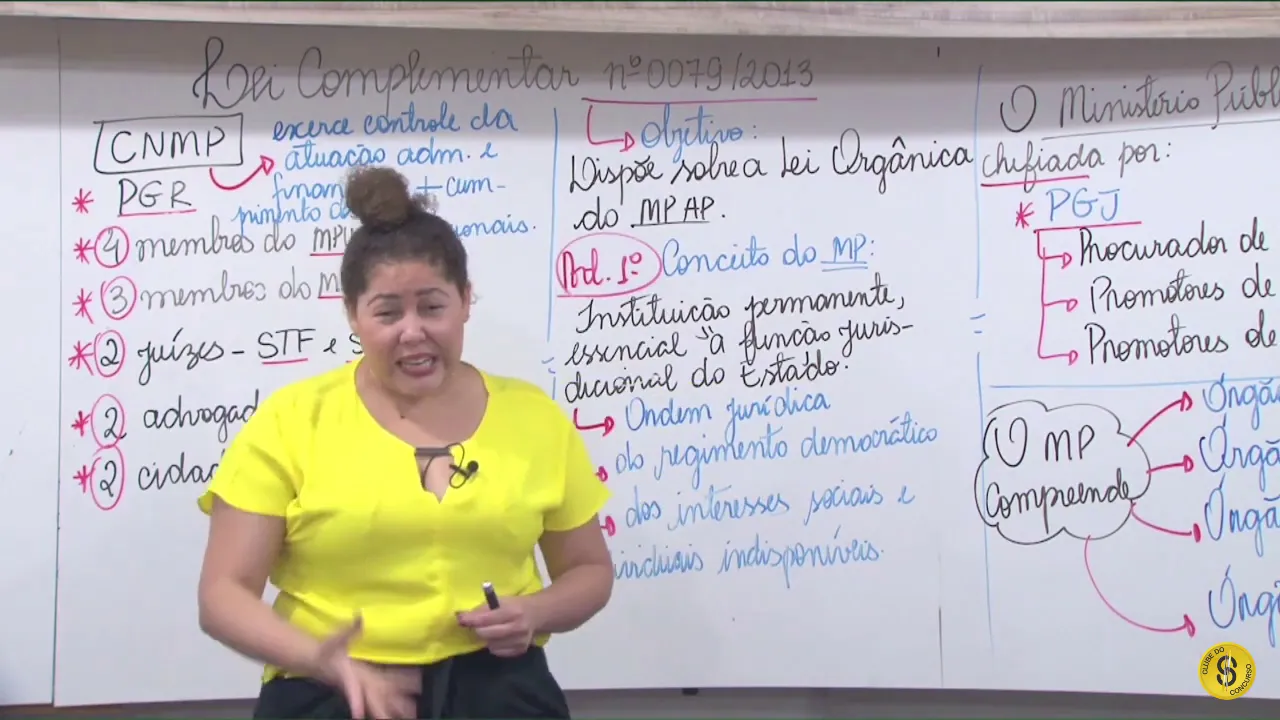 Lei Complementar nº 0079/2013
CNMP
exerce controle da
atuação adm. e
+ cum-
primento
* PGR
* 4 membros do
* 3 membros do
* 2 juízes - STF e
* 2
* 2
Objetivo:
Dispõe sobre a Lei Orgânica
do MPAP.
Art. 1º Conceito do MP:
Instituição permanente,
essencial "à função juris-
dicional do Estado.
Ordem jurídica
do regimento democrático
dos interesses sociais e
indisponíveis.
O Ministério
chefiada por:
* PGJ
Procurador de
Promotores de
Promotores de
O MP
Compreende
CLUBE DO
CONCURSO